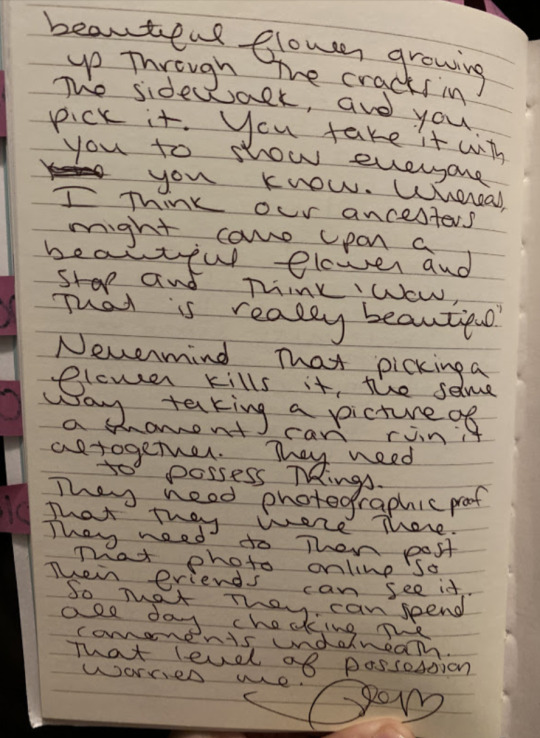 beautiful flower growing
up through the cracks in
the sidewalk, and you
pick it. You take it with
you to show everyone
you know. Whereas,
I think our ancestors
might come upon a
beautiful flower and
stop and think 'Wow,
that is really beautiful."
Nevermind that picking a
flower kills it, the same
way taking a picture of
a moment can ruin it
altogether. They need
to possess things.
They need photographic proof
that they were there.
They need to then post
that photo online so
their friends can see it.
So that they can spend
all day checking the
comments underneath.
That level of possession
worries me.